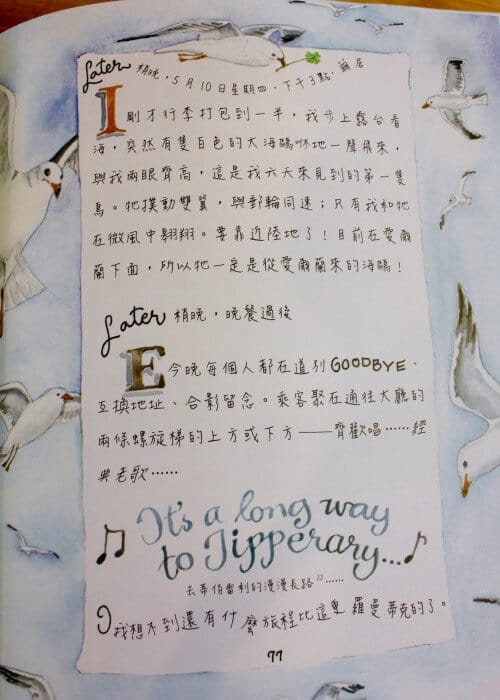 Later 稍晚，5月10日星期四．下午3點．艙房
I 剛才行李打包到一半，我步上露台看
海，突然有隻白色的大海鷗咻地一聲飛來，
與我兩眼齊高，這是我六天來見到的第一隻
鳥。牠撲動雙翼，與郵輪同速；只有我和牠
在微風中翱翔。要靠近陸地了！目前在愛爾
蘭下面，所以牠一定是從愛爾蘭來的海鷗！
Later 稍晚，晚餐過後
E 今晚每個人都在道別GOODBYE、
互換地址、合影留念。乘客聚在通往大廳的
兩條螺旋梯的上方或下方——齊歡唱……經
典老歌……
It's a long way
to Tipperary...
去蒂伯雷利的漫漫長路22……
我想不到還有什麼旅程比這更羅曼蒂克的了。
77